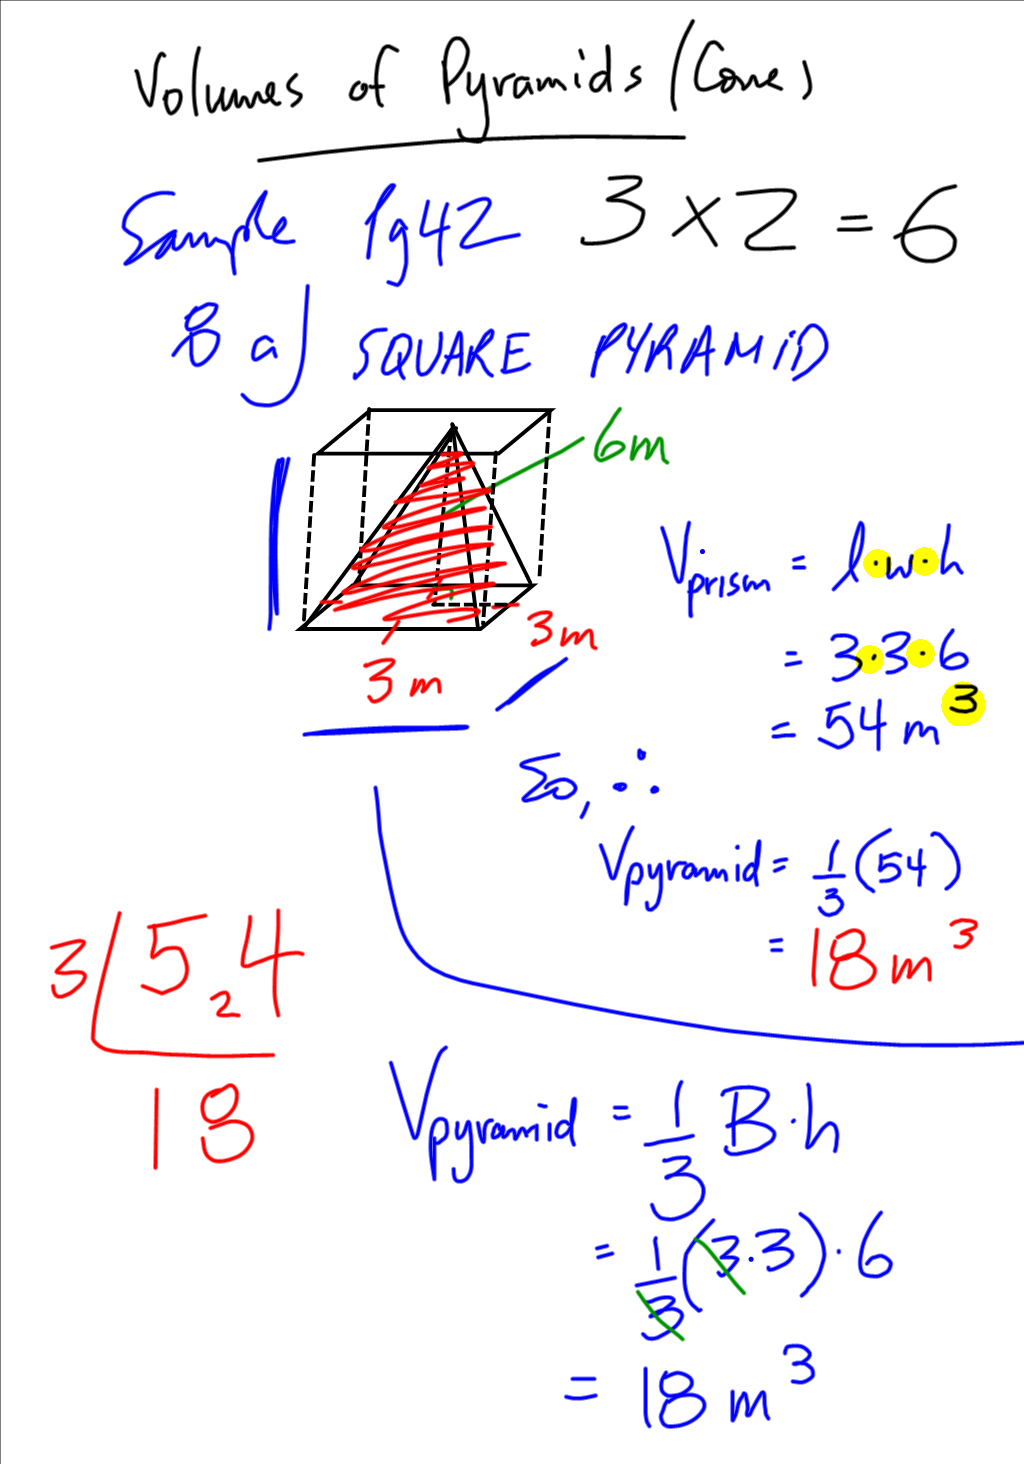 Volumes of Pyramids (Cone)
Sample Pg42 3 × 2 = 6
8 a) SQUARE PYRAMiD
6m
3m
3m
Vprism = l·w·h
= 3·3·6
= 54 m³
So, ∴
Vpyramid = 1/3 (54)
= 18 m³
3/5₂4
18
Vpyramid = 1/3 B·h
= 1/3 (3·3)·6
= 18 m³